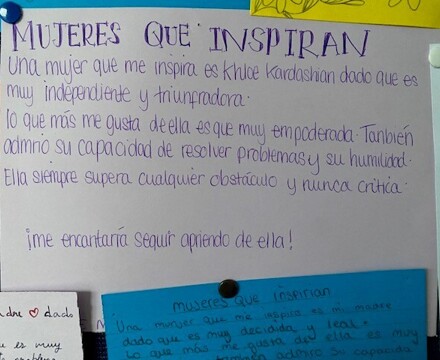 MUJERES QUE INSPIRAN
Una mujer que me inspira es Khloe Kardashian dado que es
muy independiente y triunfradora.
lo que más me gusta de ella es que muy empoderada. Tanbién
admrio su capacidad de resolver problemas y su humildad.
Ella siempre supera cualquier obstáculo y nunca critica.
¡me encantaría seguir apriendo de ella!
dado
es muy
mujeres que inspirian
Una mujer que me inspira es mi madre
dado que es muy decidida y leal.
Lo que más me gusta de ella es muy
también admiro su capacidad